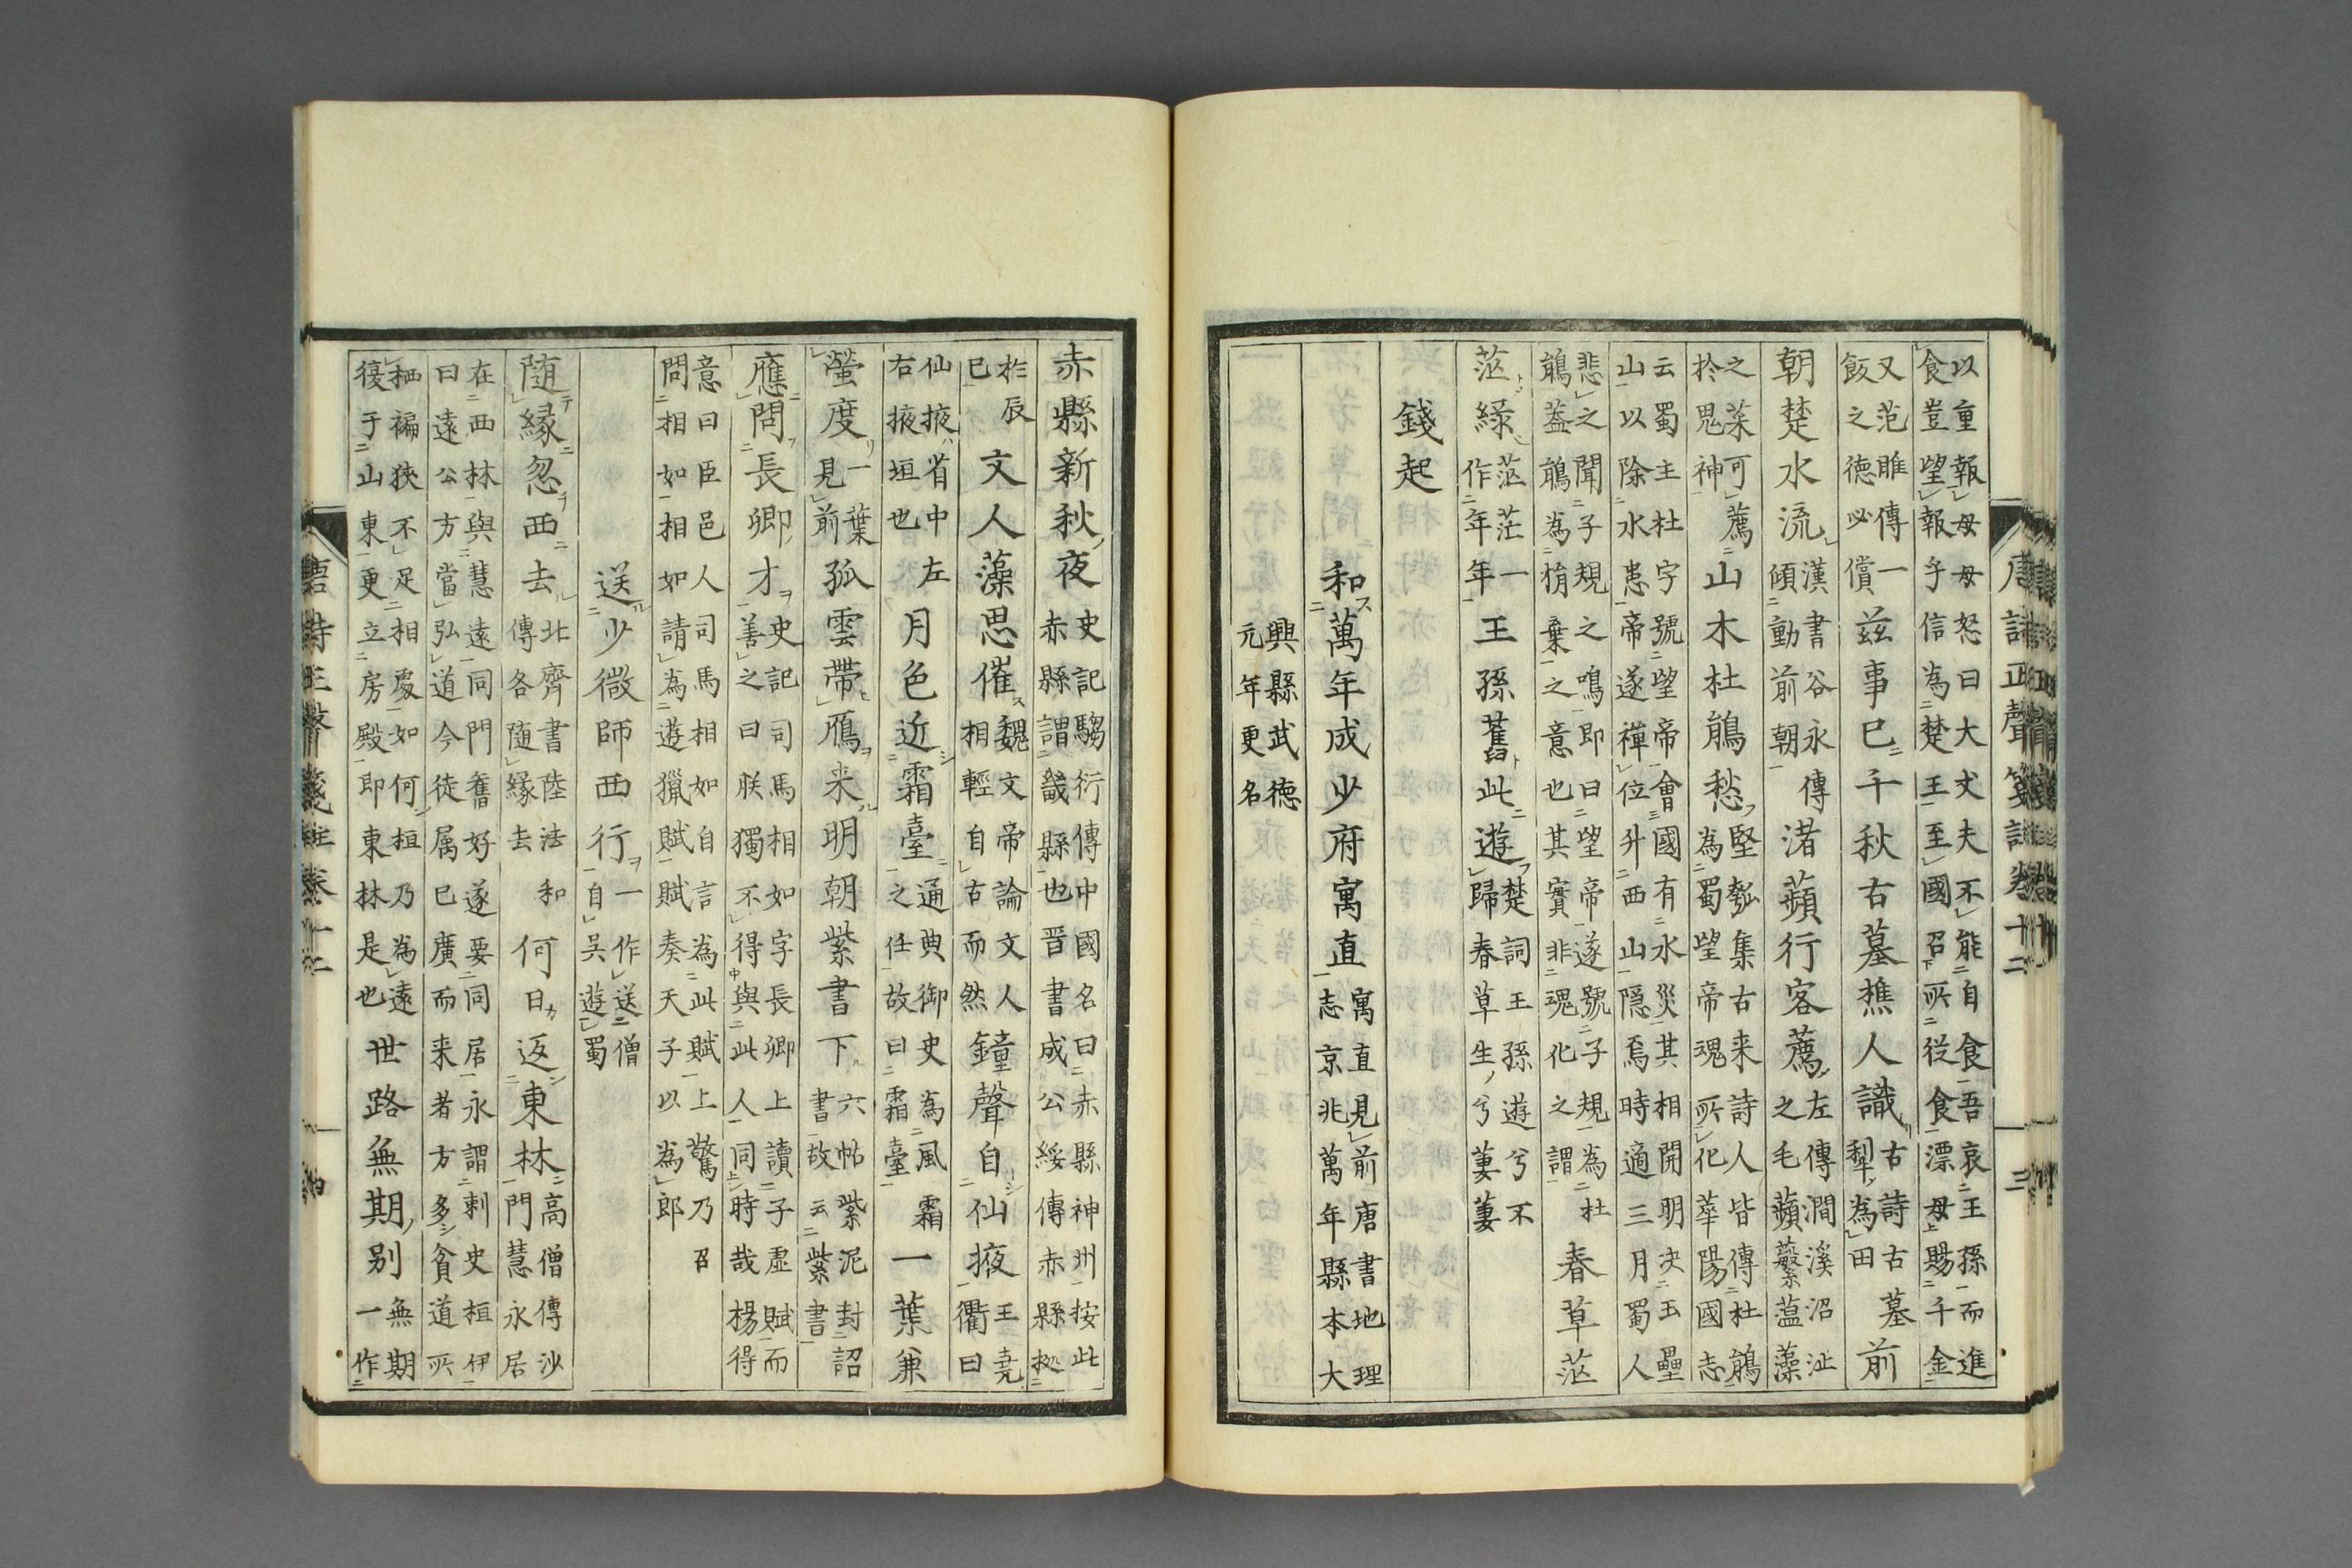 以重報母母怒曰大丈夫不能自食吾哀王孫而進
食豈望報乎信為楚王至國召所從食漂母賜千金
又范睢傳一
飯之德必償
茲事已千秋古墓樵人識
古詩古墓
犁為田
前
朝楚水流
漢書谷永傳
傾動前朝
渚蘋行客薦
左傳澗溪沼沚
之毛蘋蘩薀藻
之菜可薦
於鬼神
山木杜鵑愁
堅瓠集古来詩人皆傳杜鵑
為蜀望帝魂所化華陽國志
云蜀主杜宇號望帝會國有水災其相開明决玉壘
山以除水患帝遂禪位升西山隱焉時適三月蜀人
悲之聞子規之鳴即曰望帝遂號子規為杜
鵑蓋鵑為猶棄之意也其實非魂化之謂
春草茫
茫緑
茫茫一
作年年
王孫舊此遊
楚詞王孫遊兮不
歸春草生兮萋萋
錢起
和萬年成少府寓直
寓直見前唐書地理
志京兆萬年縣本大
興縣武徳
元年更名
唐詩正聲箋註卷十二 三
赤縣新秋夜
史記騶衍傳中國名曰赤縣神州按此
赤縣謂畿縣也晋書成公綏傳赤縣拠
於辰
巳
文人藻思催
魏文帝論文人
相輕自古而然
鐘聲自仙掖
王堯
衢曰
仙掖省中左
右掖垣也
月色近霜臺
通典御史為風霜
之任故曰霜臺
一葉兼
螢度
一葉
見前
孤雲帶鴈来明朝紫書下
六帖紫泥封詔
書故云紫書
應問長卿才
史記司馬相如字長卿上讀子虛賦而
善之曰朕獨不得與此人同時哉楊得
意曰臣邑人司馬相如自言為此賦上驚乃召
問相如相如請為遊獵賦賦奏天子以為郎
送少微師西行
一作送僧
自吳遊蜀
随緣忽西去
北齊書陸法和
傳各随緣去
何日返東林
高僧傳沙
門慧永居
在西林與慧遠同門舊好遂要同居永謂刺史桓伊
曰遠公方當弘道今徒属已廣而来者方多貧道所
栖褊狹不足相處如何桓乃為遠
復于山東更立房殿即東林是也
世路無期別
無期
一作